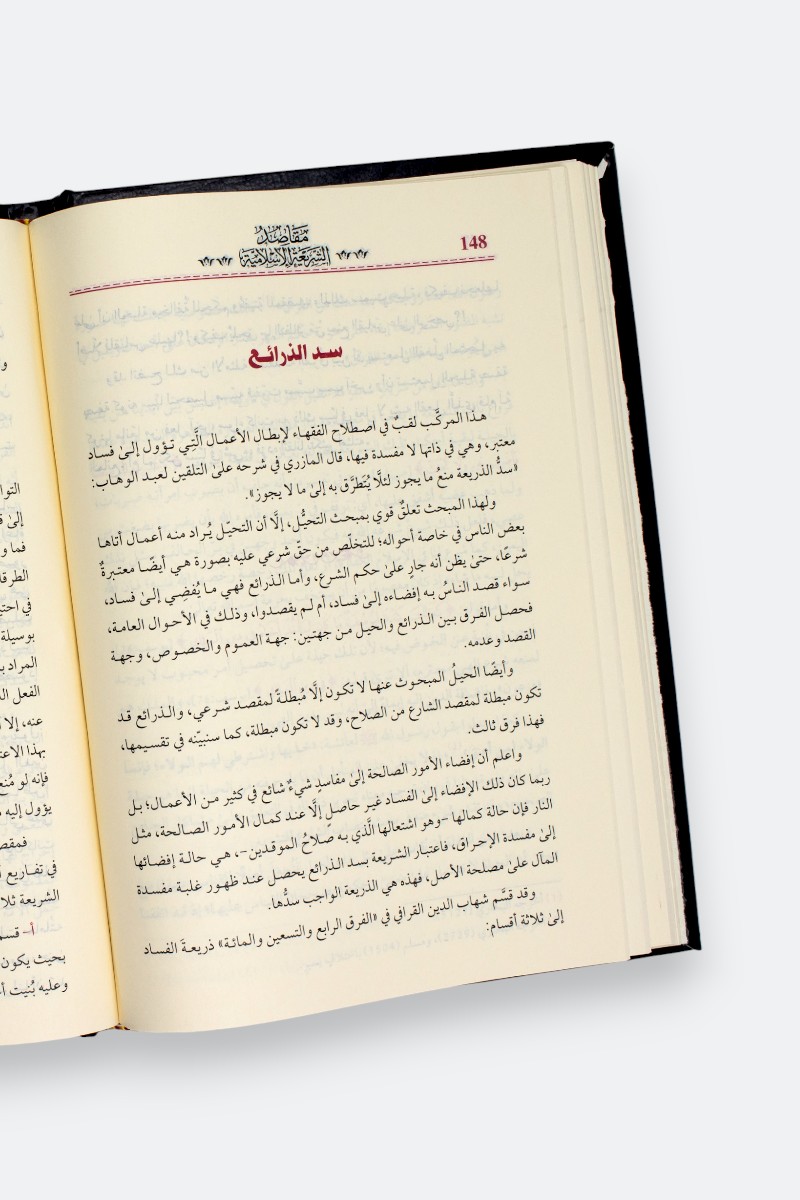 148
مقاصد
الشريعة الإسلامية
سد الذرائع
هذا المركَّب لقبٌ في اصطلاح الفقهاء لإبطال الأعمال الَّتِي تؤول إلىٰ فساد
معتبر، وهي في ذاتها لا مفسدة فيها، قال المازري في شرحه علىٰ التلقين لعبد الوهاب:
«سدُّ الذريعة منعُ ما يجوز لئلَّا يُتَطرَّق به إلىٰ ما لا يجوز».
ولهذا المبحث تعلقٌ قوي بمبحث التحيُّل، إلَّا أن التحيّل يُراد منه أعمال أتاها
بعض الناس في خاصة أحواله؛ للتخلّص من حقّ شرعي عليه بصورة هي أيضًا معتبرةٌ
شرعًا، حتىٰ يظن أنه جارٍ علىٰ حكم الشرع، وأما الذرائع فهي ما يُفضِي إلىٰ فساد،
سواء قصد الناسُ به إفضاءه إلىٰ فساد، أم لم يقصدوا، وذلك في الأحوال العامة،
فحصل الفرق بين الذرائع والحيل من جهتين: جهة العموم والخصوص، وجهة
القصد وعدمه.
وأيضًا الحيلُ المبحوث عنها لا تكون إلَّا مُبطلةً لمقصد شرعي، والذرائع قد
تكون مبطلة لمقصد الشارع من الصلاح، وقد لا تكون مبطلة، كما سنبيّنه في تقسيمها،
فهذا فرق ثالث.
واعلم أن إفضاء الأمور الصالحة إلىٰ مفاسدٍ شيءٌ شائع في كثير من الأعمال؛ بل
ربما كان ذلك الإفضاء إلىٰ الفساد غير حاصلٍ إلَّا عند كمال الأمور الصالحة، مثل
النار فإن حالة كمالها -وهو اشتعالها الَّذي به صلاحُ الموقدين-، هي حالة إفضائها
إلىٰ مفسدة الإحراق، فاعتبار الشريعة بسد الذرائع يحصل عند ظهور غلبة مفسدة
المآل علىٰ مصلحة الأصل، فهذه هي الذريعة الواجب سدُّها.
وقد قسَّم شهاب الدين القرافي في «الفرق الرابع والتسعين والمائة» ذريعةَ الفساد
إلىٰ ثلاثة أقسام: